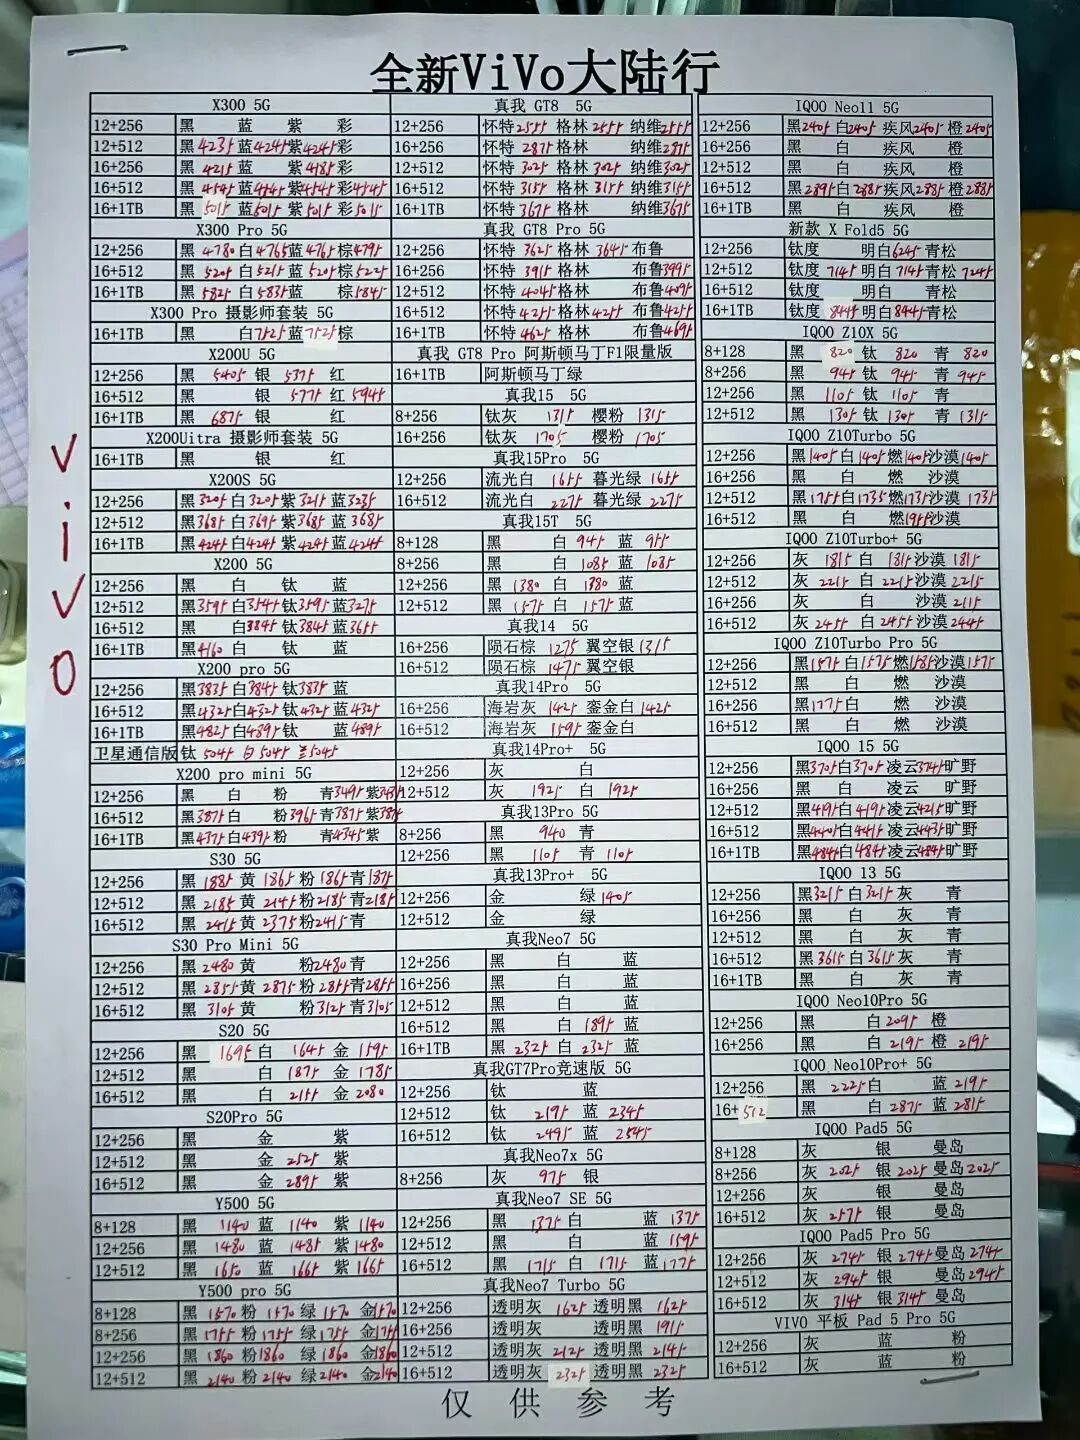 全新ViVo大陆行
ViVo
X300 5G
12+256 黑 蓝 紫 彩
12+512 黑4235 蓝4245 紫4245 彩
16+256 黑4215 蓝 紫4185 彩
16+512 黑4545 蓝4545 紫4545 彩4545
16+1TB 黑5015 蓝5015 紫5015 彩5015
X300 Pro 5G
12+256 黑4780 白4765 蓝4765 棕4795
16+512 黑5205 白5215 蓝5205 棕5225
16+1TB 黑5825 白5835 蓝 棕5845
X300 Pro 摄影师套装 5G
16+1TB 黑 白7525 蓝7525 棕
X200U 5G
12+256 黑5405 银5375 红
16+512 黑 银5775 红5945
16+1TB 黑6875 银 红
X200Uitra 摄影师套装 5G
16+1TB 黑 银 红
X200S 5G
12+256 黑3205 白3205 紫3215 蓝3235
12+512 黑3685 白3695 紫3685 蓝3685
16+1TB 黑4245 白4245 紫4245 蓝4245
X200 5G
12+256 黑 白 钛 蓝
12+512 黑3595 白3545 钛3595 蓝3275
16+512 黑 白3845 钛3845 蓝3655
16+1TB 黑4160 白 钛 蓝
X200 pro 5G
12+256 黑3835 白3845 钛3835 蓝
16+512 黑4325 白4325 钛4325 蓝4325
16+1TB 黑4825 白4895 钛 蓝4895
卫星通信版 钛5045 白5045 兰5045
X200 pro mini 5G
12+256 黑 白 粉 青3495 紫
16+512 黑3875 白 粉3965 青3875 紫
16+1TB 黑4375 白4395 粉 青4345 紫
S30 5G
12+256 黑1885 黄1865 粉1865 青1875
12+512 黑2185 黄2145 粉2185 青2185
16+512 黑2415 黄2375 粉2415 青
S30 Pro Mini 5G
12+256 黑2480 黄 粉2480 青
12+512 黑2855 黄2875 粉2855 青2855
16+512 黑3105 黄 粉3125 青3105
S20 5G
12+256 黑1695 白1645 金1595
12+512 黑 白1875 金1785
16+512 黑 白2155 金2080
S20Pro 5G
12+256 黑 金 紫
12+512 黑 金2525 紫
16+512 黑 金2895 紫
Y500 5G
8+128 黑1140 蓝1140 紫1140
12+256 黑1480 蓝1485 紫1480
12+512 黑1650 蓝1665 紫1665
Y500 pro 5G
8+128 黑1570 粉1570 绿1570 金1570
8+256 黑1755 粉1755 绿1755 金1755
12+256 黑1860 粉1860 绿1860 金1860
12+512 黑2140 粉2140 绿2140 金2140
真我 GT8 5G
12+256 怀特2555 格林2555 纳维2555
16+256 怀特2875 格林 纳维2875
12+512 怀特3025 格林3025 纳维3025
16+512 怀特3155 格林3155 纳维3155
16+1TB 怀特3675 格林 纳维3675
真我 GT8 Pro 5G
12+256 怀特3625 格林3645 布鲁
16+256 怀特3915 格林 布鲁3995
12+512 怀特4045 格林 布鲁4095
16+512 怀特4255 格林4255 布鲁4255
16+1TB 怀特4625 格林 布鲁4695
真我 GT8 Pro 阿斯顿马丁F1限量版
16+1TB 阿斯顿马丁绿
真我15 5G
8+256 钛灰1315 樱粉1315
16+256 钛灰1705 樱粉1705
真我15Pro 5G
12+256 流光白1655 暮光绿1655
16+512 流光白2275 暮光绿2275
真我15T 5G
8+128 黑 白945 蓝955
8+256 黑 白1085 蓝1085
12+256 黑1380 白1380 蓝
12+512 黑1575 白1575 蓝
真我14 5G
16+256 陨石棕1275 翼空银1315
16+512 陨石棕1475 翼空银
真我14Pro 5G
16+256 海岩灰1425 銮金白1425
16+512 海岩灰1595 銮金白
真我14Pro+ 5G
12+256 灰 白
12+512 灰1925 白1925
真我13Pro 5G
8+256 黑940 青
12+256 黑1105 青1105
真我13Pro+ 5G
12+256 金 绿1405
12+512 金 绿
真我Neo7 5G
12+256 黑 白 蓝
16+256 黑 白 蓝
12+512 黑 白 蓝
16+512 黑 白1895 蓝
16+1TB 黑2325 白2325 蓝
真我GT7Pro竞速版 5G
12+256 钛 蓝
12+512 钛2195 蓝2345
16+512 钛2495 蓝2545
真我Neo7x 5G
8+256 灰975 银
真我Neo7 SE 5G
12+256 黑1375 白 蓝1375
12+512 黑 白 蓝1595
16+512 黑1715 白1715 蓝1775
真我Neo7 Turbo 5G
12+256 透明灰1625 透明黑1625
16+256 透明灰 透明黑1915
12+512 透明灰2125 透明黑2145
16+512 透明灰2325 透明黑2325
IQOO Neo11 5G
12+256 黑2405 白2405 疾风2405 橙2405
16+256 黑 白 疾风 橙
12+512 黑 白 疾风 橙
16+512 黑2895 白2885 疾风2885 橙2885
16+1TB 黑 白 疾风 橙
新款 X Fold5 5G
12+256 钛度 明白6245 青松
12+512 钛度7145 明白7145 青松7245
16+512 钛度 明白 青松
16+1TB 钛度8445 明白8445 青松
IQOO Z10X 5G
8+128 黑820 钛820 青820
8+256 黑945 钛945 青945
12+256 黑1105 钛1105 青
12+512 黑1305 钛1305 青1315
IQOO Z10Turbo 5G
12+256 黑1405 白1405 燃1405 沙漠1405
16+256 黑 白 燃 沙漠
12+512 黑1755 白1735 燃1735 沙漠1735
16+512 黑 白 燃1955 沙漠
IQOO Z10Turbo+ 5G
12+256 灰1815 白1815 沙漠1815
12+512 灰2215 白2215 沙漠2215
16+256 灰 白 沙漠2115
16+512 灰2455 白2455 沙漠2445
IQOO Z10Turbo Pro 5G
12+256 黑1575 白1575 燃1585 沙漠1575
12+512 黑 白 燃 沙漠
16+256 黑1775 白 燃 沙漠
16+512 黑 白 燃 沙漠
IQOO 15 5G
12+256 黑3705 白3705 凌云3745 旷野
16+256 黑 白 凌云 旷野
12+512 黑4195 白4195 凌云4215 旷野
16+512 黑4405 白4415 凌云4435 旷野
16+1TB 黑4845 白4845 凌云4845 旷野
IQOO 13 5G
12+256 黑3215 白3215 灰 青
16+256 黑 白 灰 青
12+512 黑 白 灰 青
16+512 黑3615 白3615 灰 青
16+1TB 黑 白 灰 青
IQOO Neo10Pro 5G
12+256 黑 白2095 橙
16+256 黑 白2195 橙2195
IQOO Neo10Pro+ 5G
12+256 黑2225 白 蓝2195
16+512 黑 白2875 蓝2815
IQOO Pad5 5G
8+128 灰 银 曼岛
8+256 灰2025 银2025 曼岛2025
12+256 灰 银 曼岛
16+512 灰2575 银 曼岛
IQOO Pad5 Pro 5G
12+256 灰2745 银2745 曼岛2745
12+512 灰2945 银 曼岛2945
16+512 灰3145 银3145 曼岛
VIVO 平板 Pad 5 Pro 5G
12+256 灰 蓝 粉
16+512 灰 蓝 粉
仅供参考